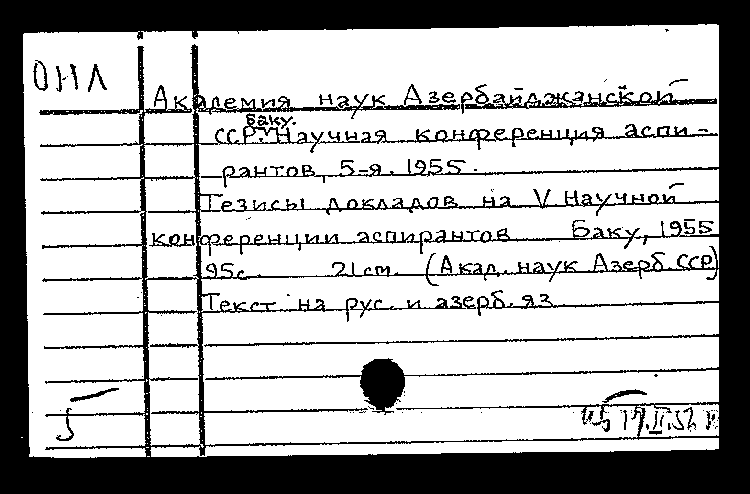 ОНЛ
Академия наук Азербайджанской
Баку.
ССР. Научная конференция аспи-
рантов, 5-я. 1955.
Тезисы докладов на V Научной
конференции аспирантов Баку, 1955
95с. 21см. (Акад. наук Азерб. ССР)
Текст на рус. и азерб. яз.
5
17.II.56